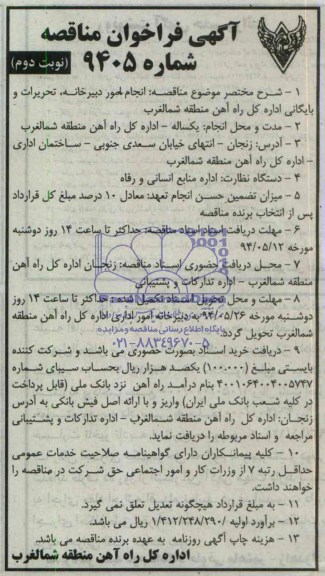 آگهی فراخوان مناقصه
شماره ۹۴۰۵
(نوبت دوم)
۱ – شرح مختصر موضوع مناقصه: انجام امور دبیرخانه، تحریرات و
بایگانی اداره کل راه آهن منطقه شمالغرب
۲ – مدت و محل انجام: یکساله – اداره کل راه آهن منطقه شمالغرب
۳ – آدرس: زنجان – انتهای خیابان سعدی جنوبی – ساختمان اداری
– اداره کل راه آهن منطقه شمالغرب
۴ – دستگاه نظارت: اداره منابع انسانی و رفاه
۵ – میزان تضمین حسن انجام تعهد: معادل ۱۰ درصد مبلغ کل قرارداد
پس از انتخاب برنده مناقصه
۶ – مهلت دریافت اسناد مناقصه: حداکثر تا ساعت ۱۴ روز دوشنبه
مورخه ۹۴/۰۵/۱۲
۷ – محل دریافت حضوری اسناد مناقصه: زنجان اداره کل راه آهن
منطقه شمالغرب – اداره تدارکات و پشتیبانی
۸ – مهلت و محل تحویل اسناد تکمیل شده: حداکثر تا ساعت ۱۴ روز
دوشنبه مورخه ۹۴/۰۵/۲۶ به دبیرخانه امور اداری اداره کل راه آهن منطقه
شمالغرب تحویل گردد.
پایگاه اطلاع رسانی مناقصه و مزایده
۰۲۱-۸۸۳۴۹۶۷۰-۵
۹ – دریافت خرید اسناد بصورت حضوری می باشد و شرکت کننده
بایستی مبلغ (۱۰۰.۰۰۰) یکصد هزار ریال بحساب سیبای شماره
۴۰۰۱۰۶۴۰۰۴۰۰۵۷۴۷ بنام درآمد راه آهن نزد بانک ملی (قابل پرداخت
در کلیه شعب بانک ملی ایران) واریز و با ارائه اصل فیش بانکی به آدرس
زنجان: اداره کل راه آهن منطقه شمالغرب – اداره تدارکات و پشتیبانی
مراجعه و اسناد مربوطه را دریافت نماید.
۱۰ – کلیه پیمانکاران دارای گواهینامه صلاحیت خدمات عمومی
حداقل رتبه ۷ از وزارت کار و امور اجتماعی حق شرکت در مناقصه را
خواهند داشت.
۱۱ – به مبلغ قرارداد هیچگونه تعدیل تعلق نمی گیرد.
۱۲ – برآورد اولیه ۱/۴۱۲/۲۴۸/۲۹۰ ریال می باشد.
۱۳ – هزینه چاپ آگهی روزنامه به عهده برنده مناقصه می باشد.
اداره کل راه آهن منطقه شمالغرب